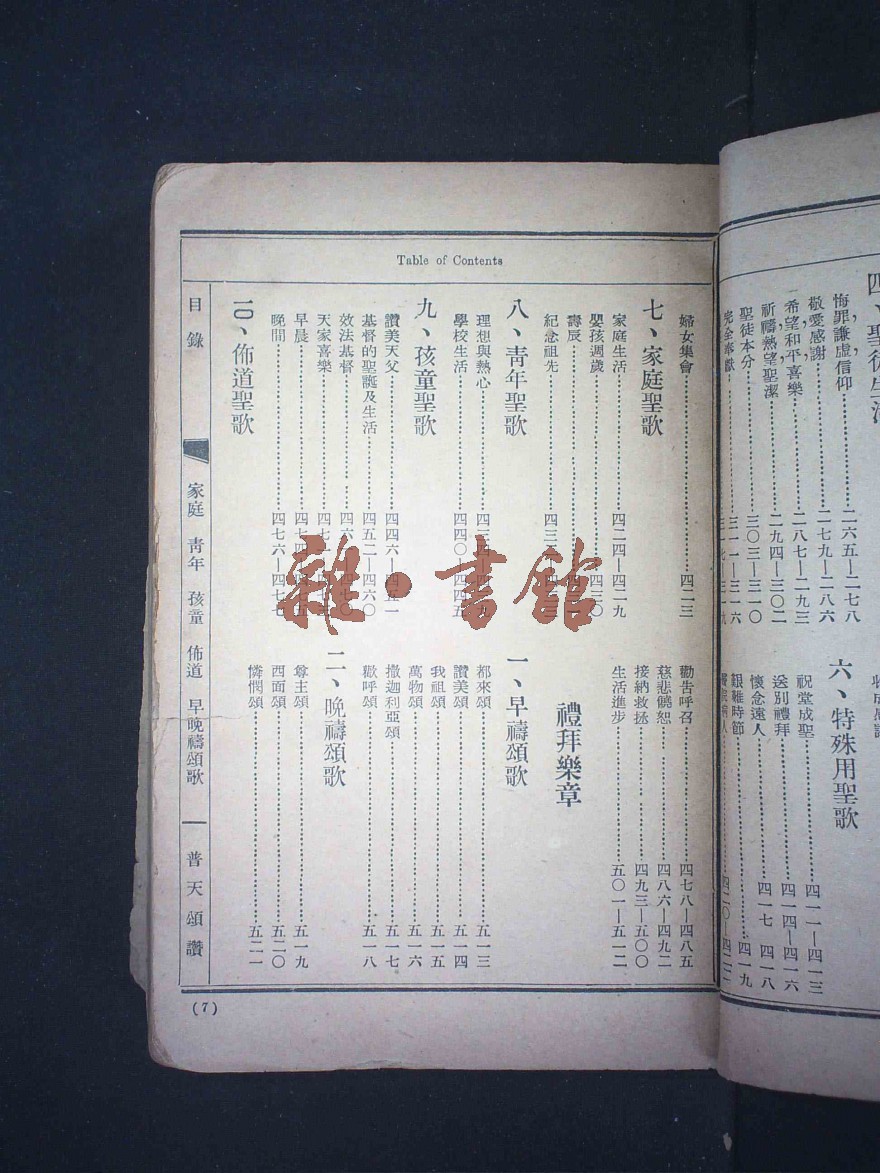 四、聖徒生活
悔罪，謙虛，信仰……二六五—二七八
敬愛，感謝……二七九—二八六
希望，和平，喜樂……二八七—二九三
祈禱，熱望，聖潔……二九四—三〇二
聖徒本分……三〇三—三一〇
完全奉獻……三一一—三一六
六、特殊用聖歌
祝堂成聖……四一一—四一三
送別禮拜……四一四—四一六
懷念遠人……四一七 四一八
艱難時節……四一九
四二〇—四二二
Table of Contents
婦女集會……四二三
七、家庭聖歌
家庭生活……四二四—四二九
嬰孩週歲……四三〇
壽辰……
紀念祖先……
八、青年聖歌
理想與熱心……
學校生活……四四〇—四四五
九、孩童聖歌
讚美天父……四四六—四五一
基督的聖誕及生活……四五二—四六〇
效法基督……
天家喜樂……
早晨……
晚間……四七六—四七七
一〇、佈道聖歌
勸告呼召……四七八—四八五
慈悲饒恕……四八六—四九二
接納救拯……四九三—五〇〇
生活進步……五〇一—五一二
禮拜樂章
一、早禱頌歌
都來頌……五一三
讚美頌……五一四
我祖頌……五一五
萬物頌……五一六
撒迦利亞頌……五一七
歡呼頌……五一八
二、晚禱頌歌
尊主頌……五一九
西面頌……五二〇
憐憫頌……五二一
目錄 家庭 青年 孩童 佈道 早晚禱頌歌 — 普天頌讚
(7)
雜·書館